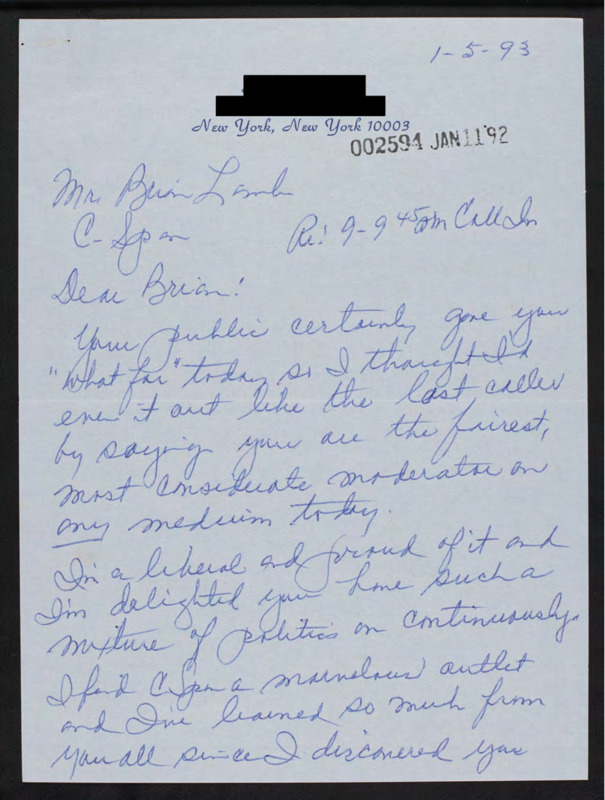 1-5-93
New York, New York 10003
002594 JAN 11 '92
Mr. Brian Lamb
C-Span
Re: 9-9 45 am Call In
Dear Brian:
Your public certainly gave you
"what for" today so I thought I'd
even it out like the last caller
by saying you are the fairest,
most considerate moderator on
any medium today.
I'm a liberal and proud of it and
I'm delighted you have such a
mixture of politics on continuously.
I find C-Span a marvelous outlet
and I've learned so much from
you all since I discovered you